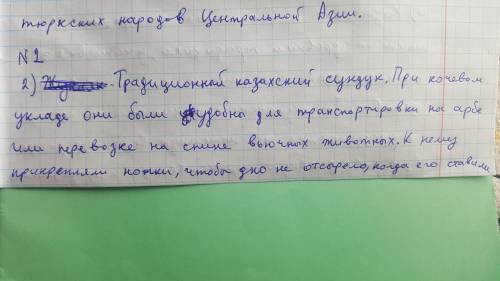 тюркских народов Центральной Азии.
№2
2) Традиционной казахский сундук. При кочевом
укладе они были удобны для транспортировки на арбе
или перевозке на спине вьючных животных. К нему
прикрепляли ножки, чтобы дно не отсырело, когда его ставили